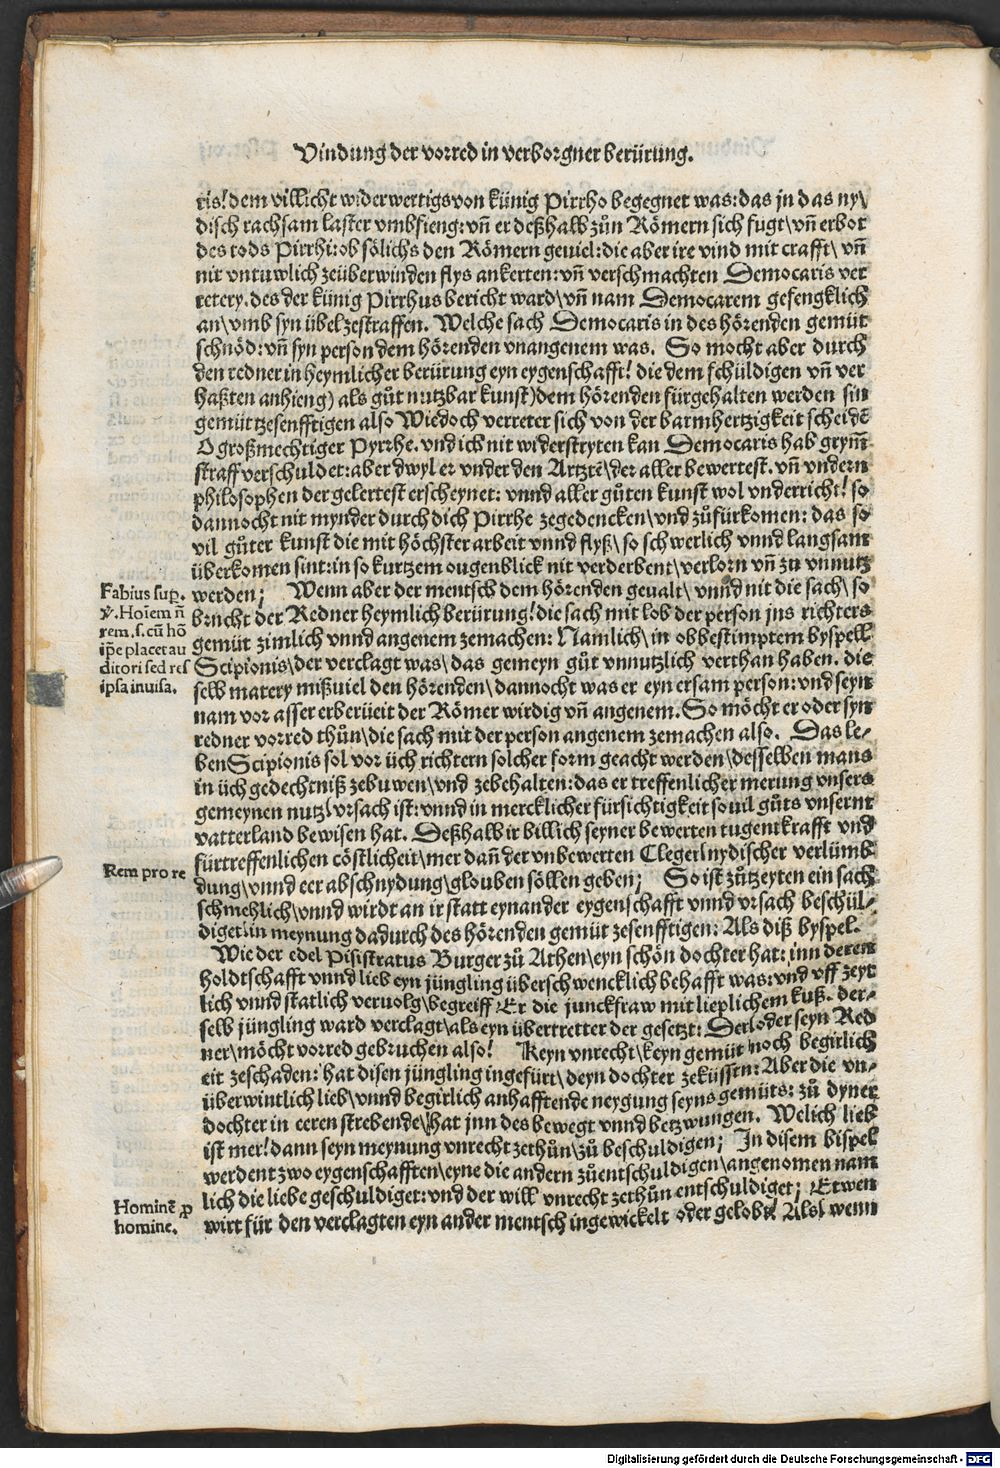 Vindung der vorred in verborgner berürung.
ris! dem villicht widerwertigs von künig Pirrho begegnet was: das jn das ny\
disch rachsam laster vmbfieng: vn̄ er deßhalb zůn Römern sich fugt\ vn̄ erbot
des tods Pirrhi: ob sölichs den Römern geuiel: die aber ire vind mit crafft\ vn̄
nit vntuwlich zeüberwinden flys ankerten: vn̄ verschmachten Democaris ver
retery. des der künig Pirrhus bericht ward\ vn̄ nam Democarem gefengklich
an\ vmb syn übel zestraffen. Welche sach Democaris in des hörenden gemüt
schnöd: vn̄ syn person dem hörenden vnangenem was. So mocht aber durch
den redner in heymlicher berürung eyn eygenschafft! die dem schüldigen vn̄ ver
haßten anhieng) als gůt nutzbar kunst) dem hörenden fürgehalten werden sin
gemüt zesenfftigen also Wiedoch verreter sich von der barmhertzigkeit scheidē
O großmechtiger Pyrrhe. vnd ich nit widerstryten kan Democaris hab grym̄
straff verschuldet: aber dwyl er vnder den Artztē\ der aller bewertest. vn̄ vndern
philosophen der gelertest erscheynet: vnnd aller gůten kunst wol vnderricht! so
dannocht nit mynder durch dich Pirrhe zegedencken\ vnd zůfürkomen: das so
vil gůter kunst die mit höchster arbeit vnnd flyß\ so schwerlich vnnd langsam
überkomen sint: in so kurtzem ougenblick nit verderbent\ verlorn vn̄ zu vnnutz
werden; Wenn aber der mentsch dem hörenden geualt\ vnnd nit die sach\ so
brucht der Redner heymlich berürung! die sach mit lob der person jns richters
gemüt zimlich vnnd angenem zemachen: Namlich\ in obbestimptem byspell
Scipionis\ der verclagt was\ das gemeyn gůt vnnutzlich verthan haben. die
selb matery mißuiel den hörenden\ dannocht was er eyn ersam person: vnd seyn
nam vor asser erberüeit der Römer wirdig vn̄ angenem. So möcht er oder syn
redner vorred thůn\ die sach mit der person angenem zemachen also. Das le-
ben Scipionis sol vor üch richtern solcher form geacht werden\ desselben mans
in üch gedechtniß zebuwen\ vnd zebehalten: das er treffenlicher merung vnsers
gemeynen nutz\ vrsach ist: vnnd in mercklicher fürsichtigkeit souil gůts vnserm
vatterland bewisen hat. Deßhalb ir billich seyner bewerten tugentkrafft vnd
fürtreffenlichen cöstlicheit\ mer dañ der vnbewerten Cleger\ nydischer verlümb
dung\ vnnd eer abschnydung\ glouben söllen geben; So ist zůtzeyten ein sach
schmehlich\ vnnd wirdt an ir statt eynander eygenschafft vnnd vrsach beschül-
diget\ in meynung dadurch des hörenden gemüt zesenfftigen: Als diß byspel.
Wie der edel Pisistratus Burger zů Athen\ eyn schön dochter hat: inn deren
holdtschafft vnnd lieb eyn jüngling überschwencklich behafft was: vnd vff zeyt
lich vnnd statlich veruolg\ begreiff Er die junckfraw mit lieplichem kuß. der-
selb jüngling ward verclagt\ als eyn übertretter der gesetzt: Der\ oder seyn Red
ner\ möcht vorred gebruchen also! Keyn vnrecht\ keyn gemüt noch begirlich
eit zeschaden: hat disen jüngling ingefürt\ deyn dochter zeküssen: Aber die vn-
überwintlich lieb\ vnnd begirlich anhafftende neygung seyns gemüts: zů dyner
dochter in eeren strebende\ hat jnn des bewegt vnnd betzwungen. Welich lieb
ist mer! dann seyn meynung vnrecht zethůn\ zů beschuldigen; In disem bispel
werdent zwo eygenschafften\ eyne die andern zůentschuldigen\ angenomen nam
lich die liebe geschuldiget: vnd der will vnrecht zethůn entschuldiget; Etwen
wirt für den verclagten eyn ander mentsch ingewickelt oder gelobt! Als\ wenn
Fabius sup.
ꝟ. Hoīem ñ
rem .s. cū hō
ip̄e placet au
ditori sed res
ipsa inuisa.
Rem pro re
Hominē ꝓ
homine.
Digitalisierung gefördert durch die Deutsche Forschungsgemeinschaft - DFG